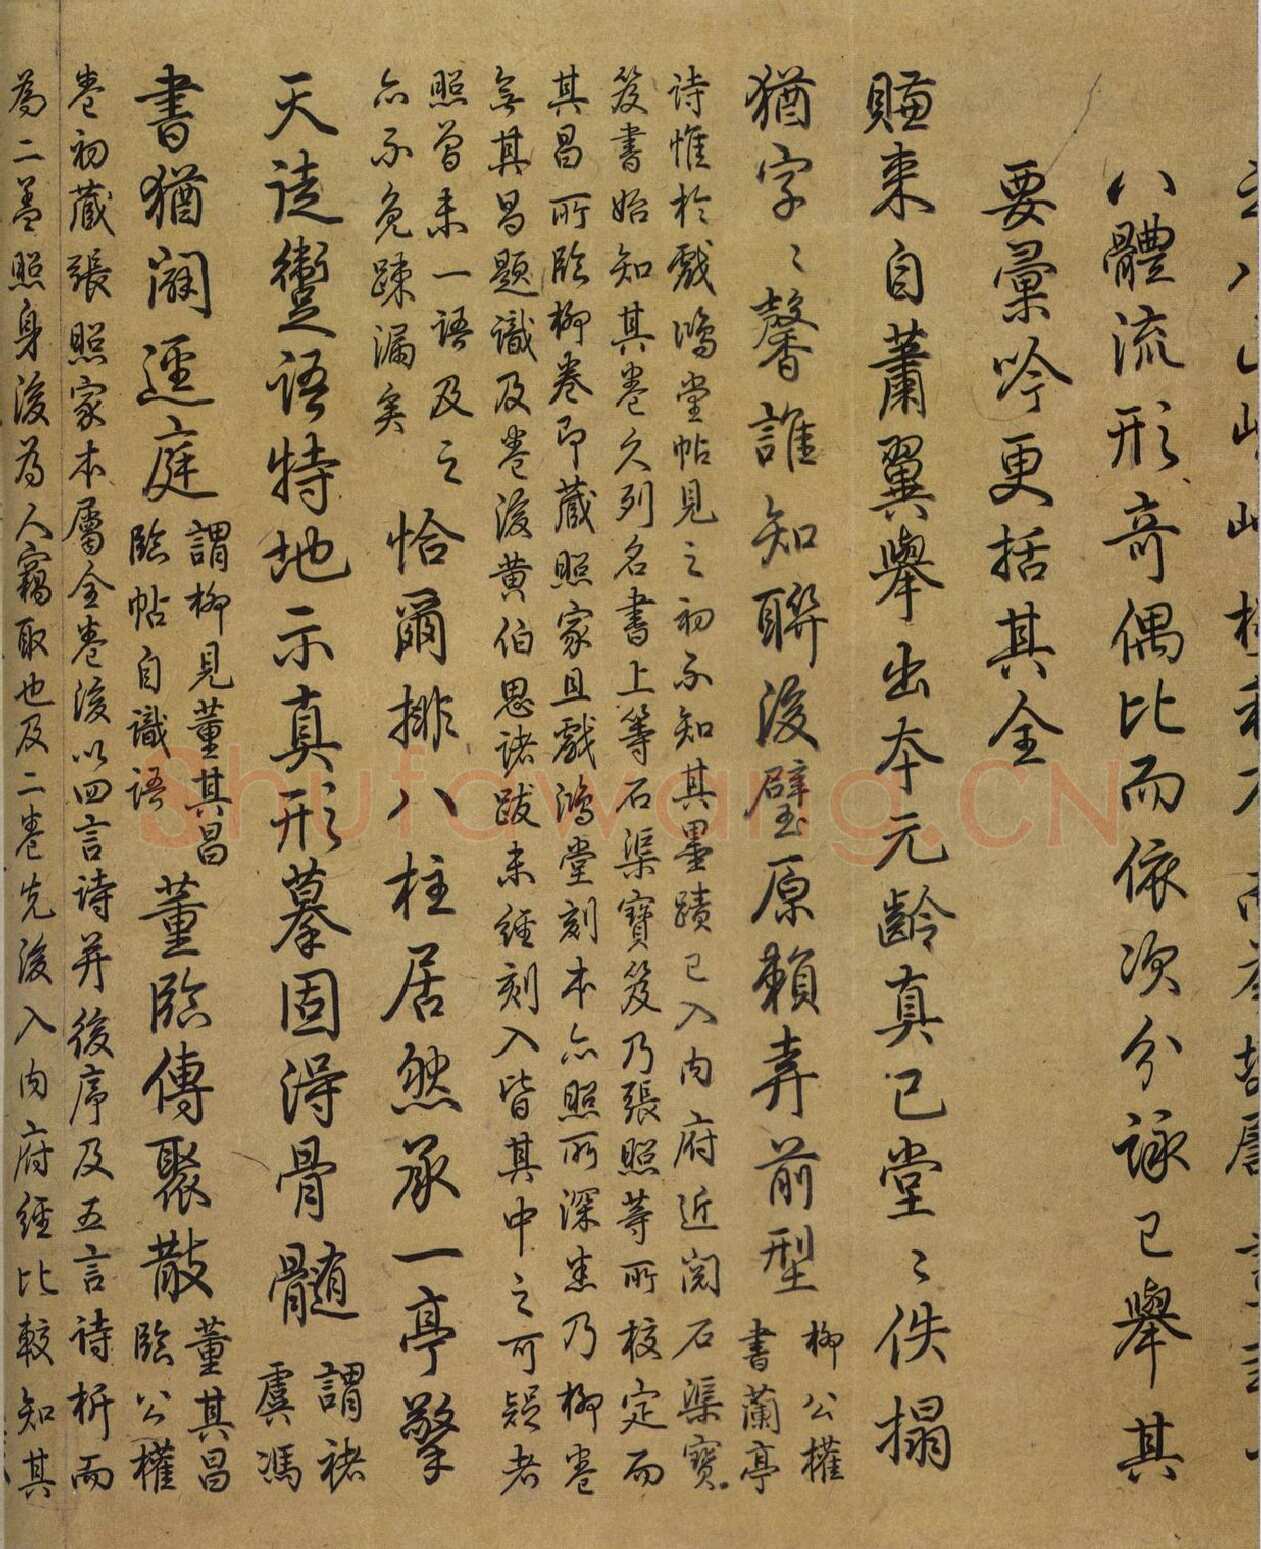 八體流形奇偶比而依次分詠已舉其
要彙吟更括其全
賺來自蕭翼舉出本元齡真已堂〻佚搨
猶字〻馨誰知聯後璧原賴弆前型
柳公權
書蘭亭
詩惟於戲鴻堂帖見之初不知其墨蹟已入內府近閱石渠寶
笈書始知其卷久列名書上等石渠寶笈乃張照等所校定而
其昌所臨柳卷即藏照家且戲鴻堂刻本亦照所深悉乃柳卷
無其昌題識及卷後黃伯思諸跋未經刻入皆其中之可疑者
照曾未一語及之
亦不免疎漏矣
恰爾排八柱居然承一亭擎
天徒躗語特地示真形摹固得骨髓
謂褚
虞馮
書猶闊逕庭
謂柳見董其昌
臨帖自識語
董臨傳聚散
董其昌
臨公權
卷初藏張照家本屬全卷後以四言詩并後序及五言詩析而
為二蓋照身後為人竊取也及二卷先後入內府經比較知其
Shufawang.CN